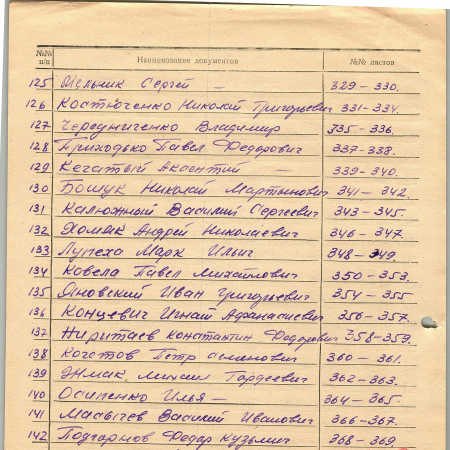 №№ п/п Наименование документов №№ листов
125 Мельник Сергей — 329-330.
126 Костюченко Николай Григорьевич 331-334.
127 Чередниченко Владимир 335-336.
128 Приходько Павел Федорович 337-338.
129 Кегатый — 339-340.
130 Бошук Николай Мартынович 341-342.
131 Калюжный Василий Сергеевич 343-345.
132 Хомяк Андрей Николаевич 346-347.
133 Лупеха Марк Ильич 348-349.
134 Ковела Павел Михайлович 350-353.
135 Яновский Иван Григорьевич 354-355
136 Концевич Игнай Афанасиевич 356-357.
137 Константин Федорович 358-359.
138 Петр 360-361.
139 Михаил Гордеевич 362-363.
140 Осипенко Илья — 364-365.
141 Василий Иванович 366-367.
142 Федор Кузьмич 368-369